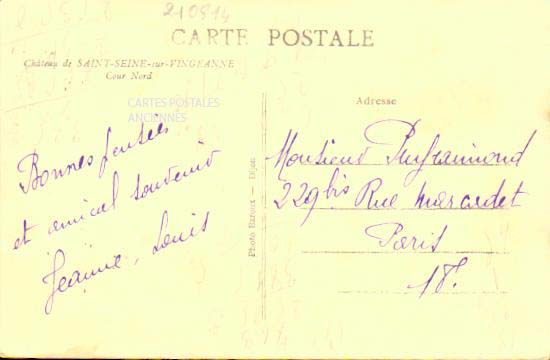 210814
CARTE POSTALE
Château de SAINT-SEINE-sur-VINGEANNE
Cour Nord
CARTES POSTALES
ANCIENNES
Adresse
Bonnes pensées
et amical souvenir
Jeanne, Louis
Photo Barnot — Dijon
Monsieur Puyraimond
229bis Rue Marcadet
Paris
18.